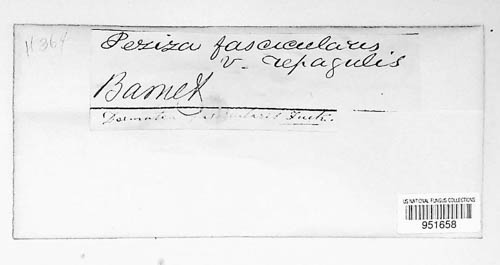 11364
Peziza fascicularis
v. repagulis
Barnet
Dermatea fascicularis Fuck.
US NATIONAL FUNGUS COLLECTIONS
951658